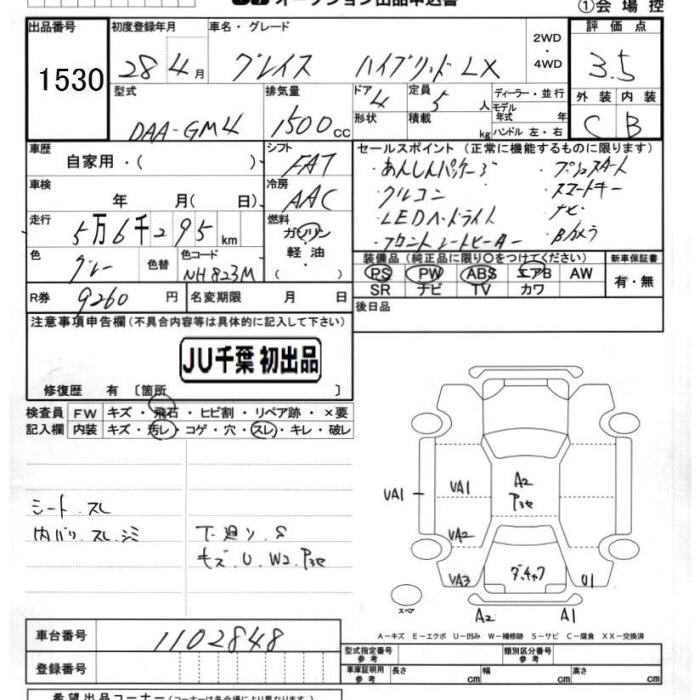 オークション出品申込書
①会場控
出品番号 初度登録年月 車名・グレード 2WD ・ 4WD 評価点
1530 28年4月 グレイス ハイブリッド LX 3.5
型式 排気量 ドア 定員 ディーラー・並行 外装 内装
DAA-GM4 1500cc 4 5人 モデル年式 年式 C B
形状 積載 kg ハンドル 左・右
車歴 自家用・( ) シフト FAT セールスポイント(正常に機能するものに限ります)
・あんしんパッケージ ・プッシュスタート
車検 年 月(日) 冷房 AAC
・クルコン ・スマートキー
・LEDヘッドライト ・ナビ
走行 5万6千295km 燃料 ガソリン・軽油
・フロントシートヒーター ・Bカメラ
色 グレー 色替 色コード NH823M
装備品(純正品に限り○をつけてください) 新車保証書
PS PW ABS エアB AW 有・無
SR ナビ TV カワ
R券 9260円 名変期限 月 日 後日品
注意事項申告欄(不具合内容等は具体的に記入して下さい)
JU千葉 初出品
修復歴 有 〔箇所 〕
検査員 FW キズ・飛石・ヒビ割・リペア跡・×要
記入欄 内装 キズ・汚レ・コゲ・穴・スレ・キレ・破レ
シート スレ
内バリ スレ シミ
下廻り S
キズ U W2 Pヨセ
A2
Pヨセ
VA1 VA1
VA2
VA3 U1
スペア
A2 A1
A−キズ E−エクボ U−凹み W−補修跡 S−サビ C−腐食 XX−交換済
車台番号 1102848
登録番号
型式指定番号 参考 類別区分番号 参考
車庫証明用 参考 長さ cm 幅 cm 高さ cm
希望出品コーナー